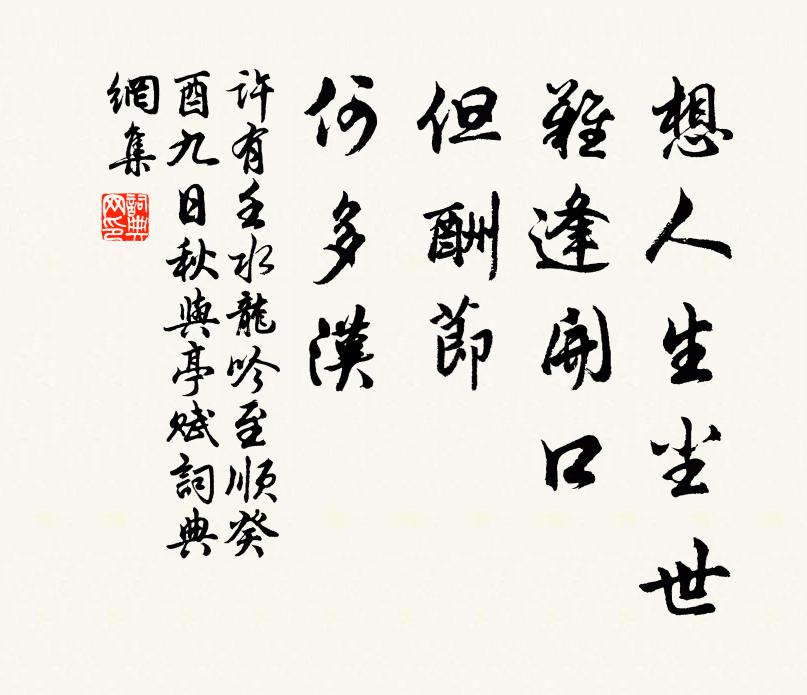 想人生尘世
難逢開口
但酬節
何多漢
許有壬水龍吟至順癸
酉九日秋興亭賦詞典
網集
詞典网印